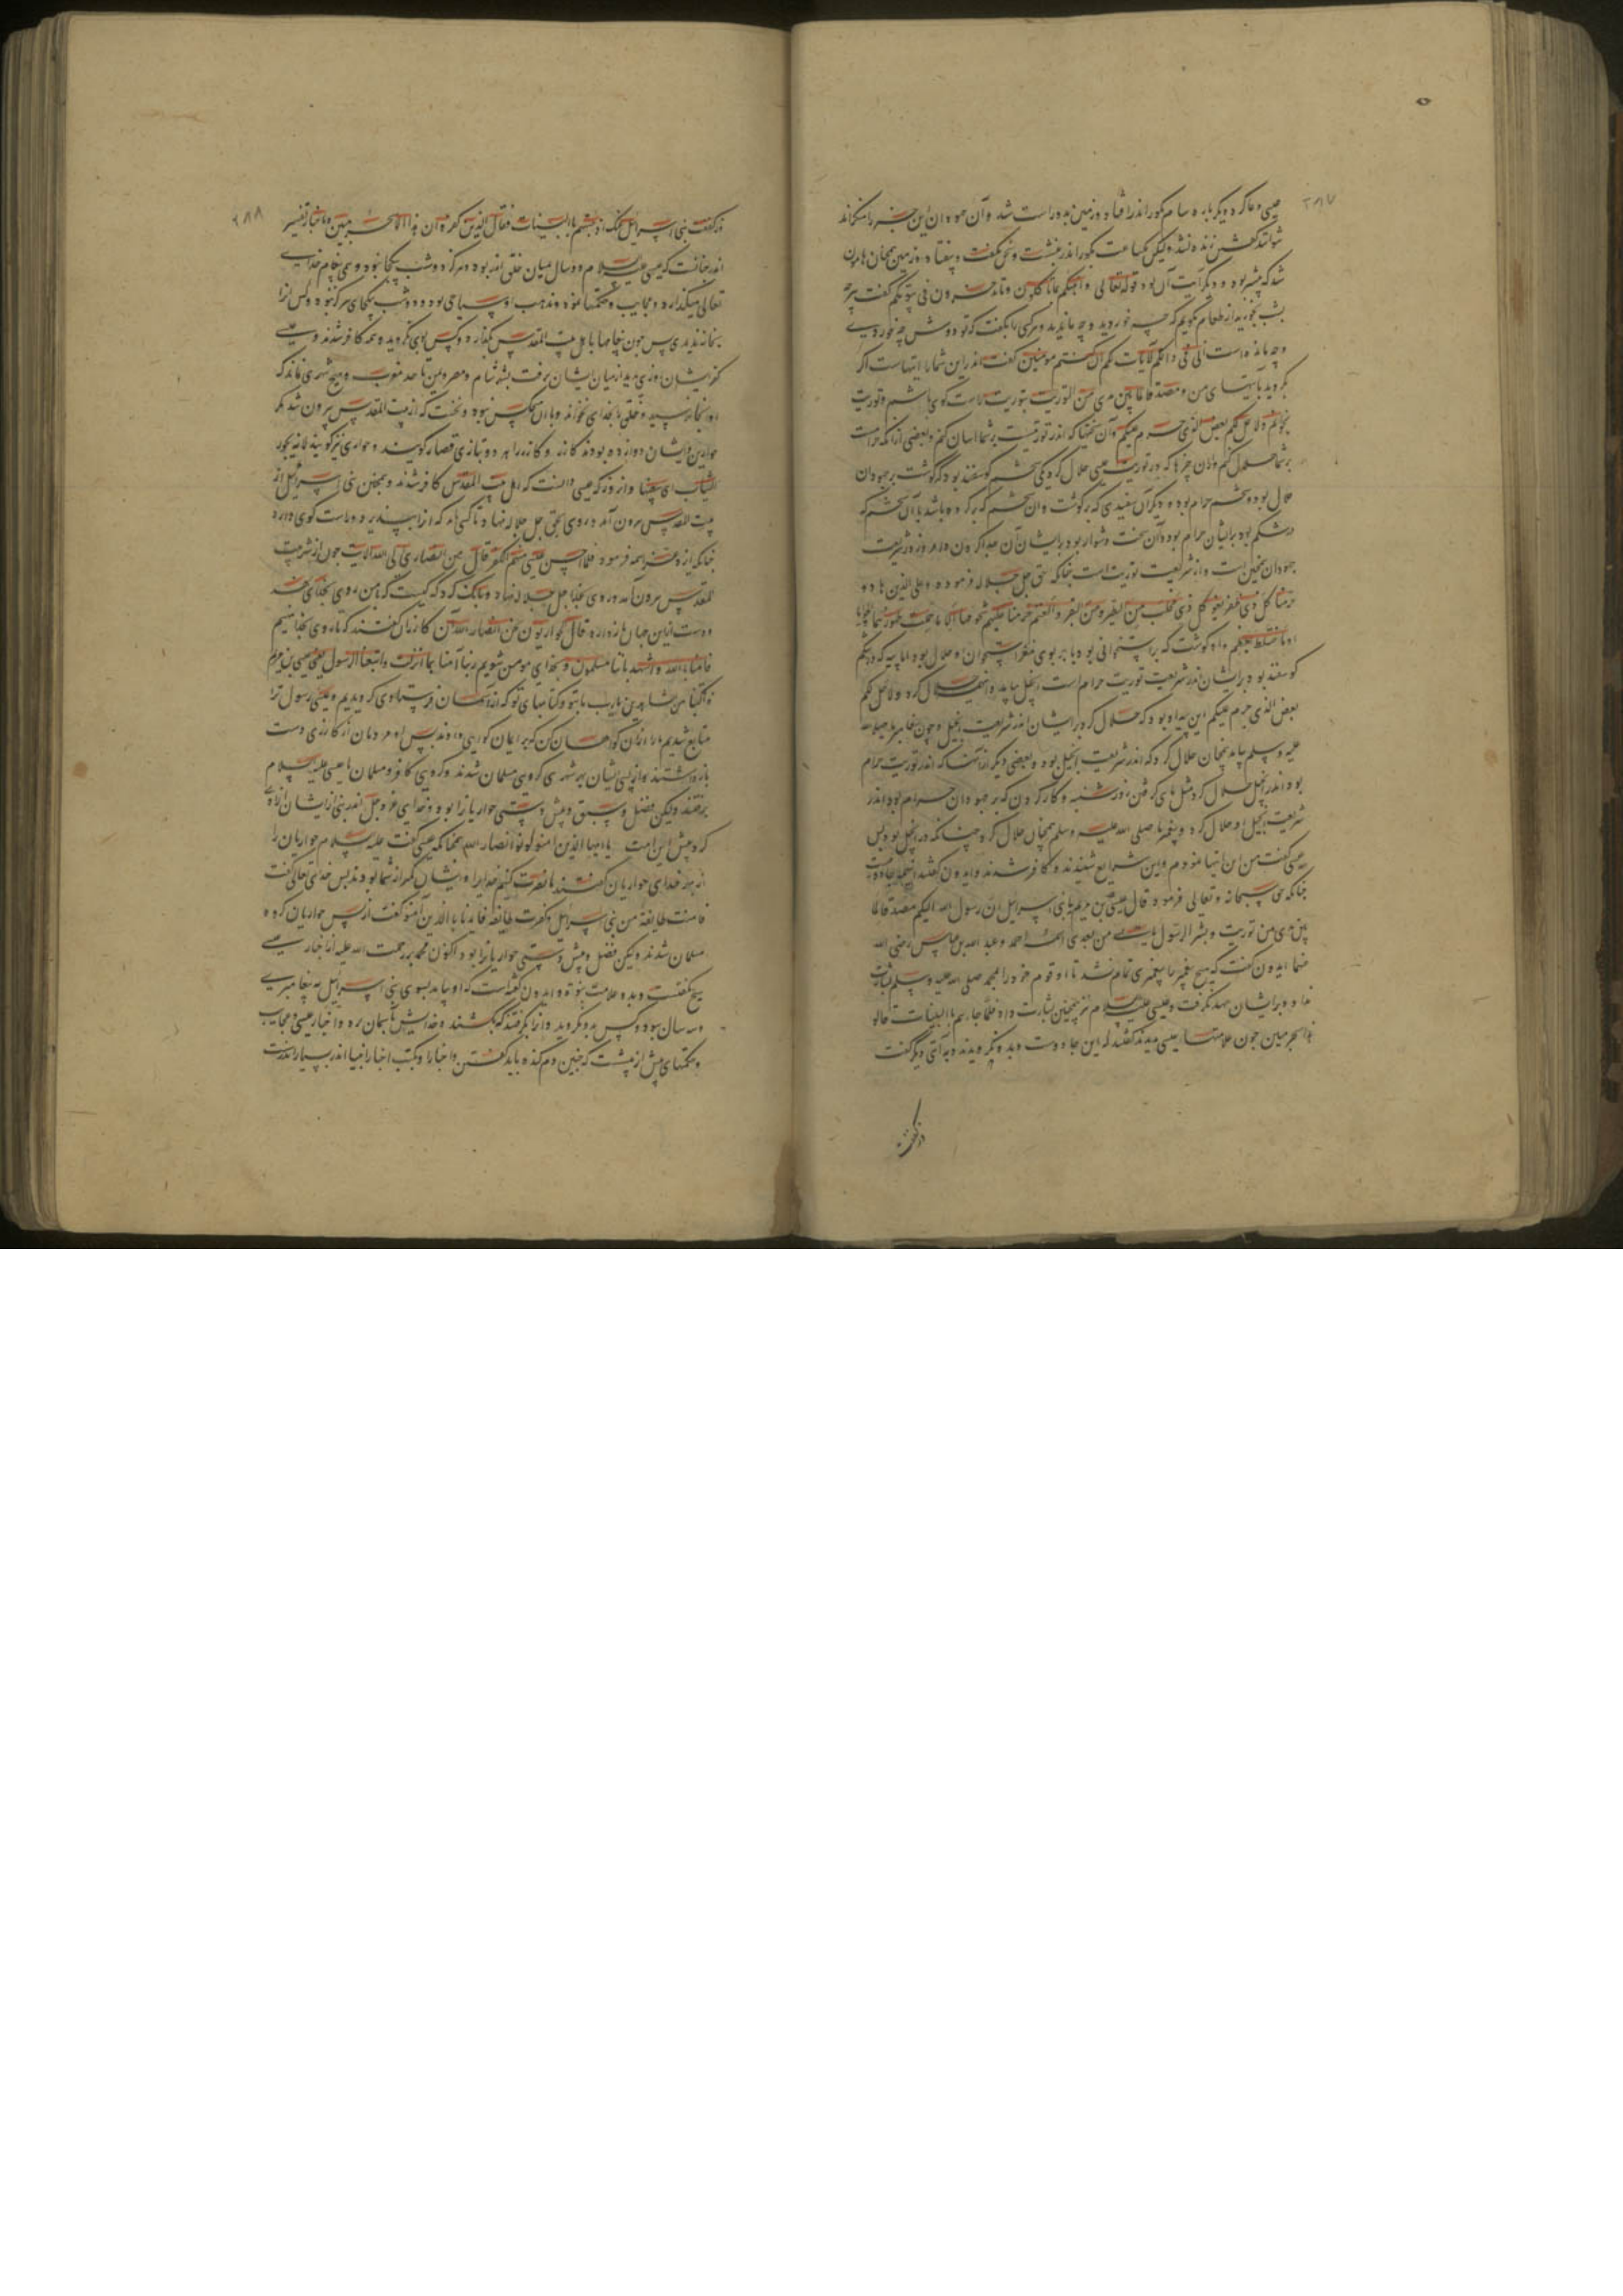 ۲۸۷
عیسی دعا کرد و دیگر باره سام بگور اندر افتاد و زمین بدو راست شد و آن جهودان این خبر را منکر اند
نتوانستند گفتن زنده نشد ولیکن یکساعت بگور اندر بنشست و سخن گفت و بیفتاد و زمین همچنان هامون
شد که پیشتر بود و دیگر آیت آن بود قوله تعالی وانبئکم بما تأکلون وما تدخرون فی بیوتکم گفت هرچه
بشب بخورید از طعام بگویم که چه خوردید و چه ماندید و هر کسی را بگفت که تو دوش چه خوردی
وچه مانده است ان فی ذالکم لآیات لکم ان کنتم مومنین گفت اندر این شما را آیتهاست اگر
بگروید بآیتهای من ومصدقا لما بین یدی من التوریت بتوریت راست گوی باشم و توریت
بخوانم ولاحل لکم بعض الذی حرم علیکم وآن سختیها که اندر توریتست بر شما آسان کنم و بعضی از آنکه حرامست
بر شما حلال کنم و از آن چیزها که در توریت عیسی حلال کرد یکی شحم گوسفند بود که گوشت بر جهودان
حلال بود و شحم حرام بود و دیگر آن سفیدی که بر گوشت و آن شحم که بر گرده باشد با آن شحم که
در شکم بود بر ایشان حرام بود و آن سخت دشوار بود بر ایشان آن جدا کردن و امروز در شریعت
جهودان همچنین است و از شریعت توریت است چنانکه حق جل جلاله فرموده وعلی الذین هادو
حرمنا کل ذی ظفر ومن البقر والغنم حرمنا علیهم شحومهما الا ما حملت ظهورهما او الحوایا
او ما اختلط بعظم و او گوشت که بر استخوانی بود یا چربوی مغز استخوان او حلال بود اما پیه که در شکم
گوسفند بود بر ایشان اندر شریعت توریت حرام است انجیل بیامد و اینهمه حلال کرد ولاحل لکم
بعض الذی حرم علیکم این پیه او بود که حلال کرد بر ایشان اندر شریعت انجیل و چون پیغامبر ما صلی الله
علیه وسلم بیامد همچنان حلال کرد که اندر شریعت انجیل بود و بعضی دیگر از آنها که اندر توریت حرام
بود اندر انجیل حلال کرد مثل ماهی گرفتن روز شنبه و کار کردن که بر جهودان حرام بود اندر
شریعت انجیل او حلال کرد و پیغمبر ما صلی الله علیه وسلم همچنان حلال کرد چنانکه در انجیل بود پس
عیسی گفت من این آیتها نمودم و این شرایع شنیدند و کافر شدند و ایدون گفتند اینهمه جادویست
چنانکه حق سبحانه و تعالی فرمود قال عیسی بن مریم یا بنی اسرائیل انی رسول الله الیکم مصدقا لما
بین یدی من توریت ومبشرا برسول یأتی من بعدی اسمه احمد و عبد الله بن عباس رضی الله
عنهما ایدون گفت که هیچ پیغمبر را پیغمبری تمام نشد تا او قوم خود را بمحمد صلی الله علیه وسلم بشارت
نداد و بر ایشان عهد نگرفت و عیسی علیه السلام نیز همچنین بشارت داد فلما جاءهم بالبینات قالو
هذا سحر مبین چون علامتهاء عیسی بدیدند گفتند که این جادوست و بدو نگرویدند و به آیتی دیگر گفت
اذ کففت
۲۸۸
اذ کففت بنی اسرائیل عنک اذ جئتهم بالبینات فقال الذین کفرو ان هذا الا سحر مبین وباخبار تفسیر
اندر چنانست که عیسی علیه السلام دو سال میان خلق اندر بود و هرگز دو شب بیکجا نبود و همی پیغام خدای
تعالی میگذارد و عجایب و حکمتها نمود و مذهب او سیاحی بود و دو شب بیکجای هرگز نبود و کس او را
بخانه ندیدی پس چون پیغامها باهل بیت المقدس بگذارد و کس بوی نگروید و همه کافر شدند و عیسی
کفر ایشان بدید از میان ایشان برفت بشهر شام و مصر و یمن تا حد مغرب و هیچ شهری نماند که
او آنجا نرسید و خلق را بخدای نخواند و با او هیچکس نبود و نخست که از بیت المقدس بیرون شد مگر
حوارین و ایشان دوازده بودند کازر و کازر را بپارسی قصار گویند و حواری نیز گویند لانه یحور
الثیاب ای یبیضها و آن روز که عیسی دانست که اهل بیت المقدس کافر شدند و همچنین بنی اسرائیل از
بیت المقدس بیرون آمد و روی بحق جل جلاله نهاد تا کسی باشد که او را بپذیرد و راست گوی دارد
چنانکه ایزد عز اسمه فرمود فلما احس عیسی منهم الکفر قال من انصاری الی الله الآیت چون از شهر بیت
المقدس بیرون آمد و روی بخدا جل جلاله نهاد و بانگ کرد که کیست که با من روی بخدای نهد
و دست ازین جهان بازدارد قال الحواریون نحن انصار الله آن کازران گفتند که ما روی بخدا نهیم
فآمنا بالله واشهد باننا مسلمون و بخدای مومن شویم ربنا آمنا بما انزلت واتبعنا الرسول یعنی عیسی بن مریم
فاکتبنا من الشاهدین یارب ما بتو و کتابهای تو که از آسمان فرستادی گرویدیم و عیسی رسول ترا
متابع شدیم ما را از آن گواهان کن که بر ایمان گواهی دادند پس او مردمان از کازری دست
بازداشتند و از پس ایشان بهر شهری گروهی مسلمان شدند و گروهی کافر و مسلمان با عیسی علیه السلام
برفتند ولیکن فضل و سبق و پیش دستی حواریانرا بود و خدای عز وجل اندر نبی از ایشان یاد
کرد پیش این امت یا ایها الذین آمنو کونو انصار الله همچنانکه عیسی گفت علیه السلام حواریان را
از بهر خدای حواریان گفتند ما نصرت کنیم خدایرا و ایشان کمتر از شما بودند پس خدای تعالی گفت
فآمنت طایفة من بنی اسرائیل وکفرت طایفة فایدنا الذین آمنو گفت از پس حواریان گروه
مسلمان شدند ولیکن فضل و پیش دستی حواریانرا بود اکنون محمد جریر رحمت الله علیه از اخبار عیسی
هیچ نگفتست و بدو علامت نبوة و ایدون گفته است که او بیامد بسوی بنی اسرائیل به پیغامبری
و سه سال ببود و کس بدو نگروید و او را بگرفتند که بکشند و خدایش بآسمان برد و اخبار عیسی و عجایب
و حکمتهای بیش از آنست که چنین مردم کند و باید گفتن و اخبار او بکتب اخبار انبیا اندر بسیار اندرست